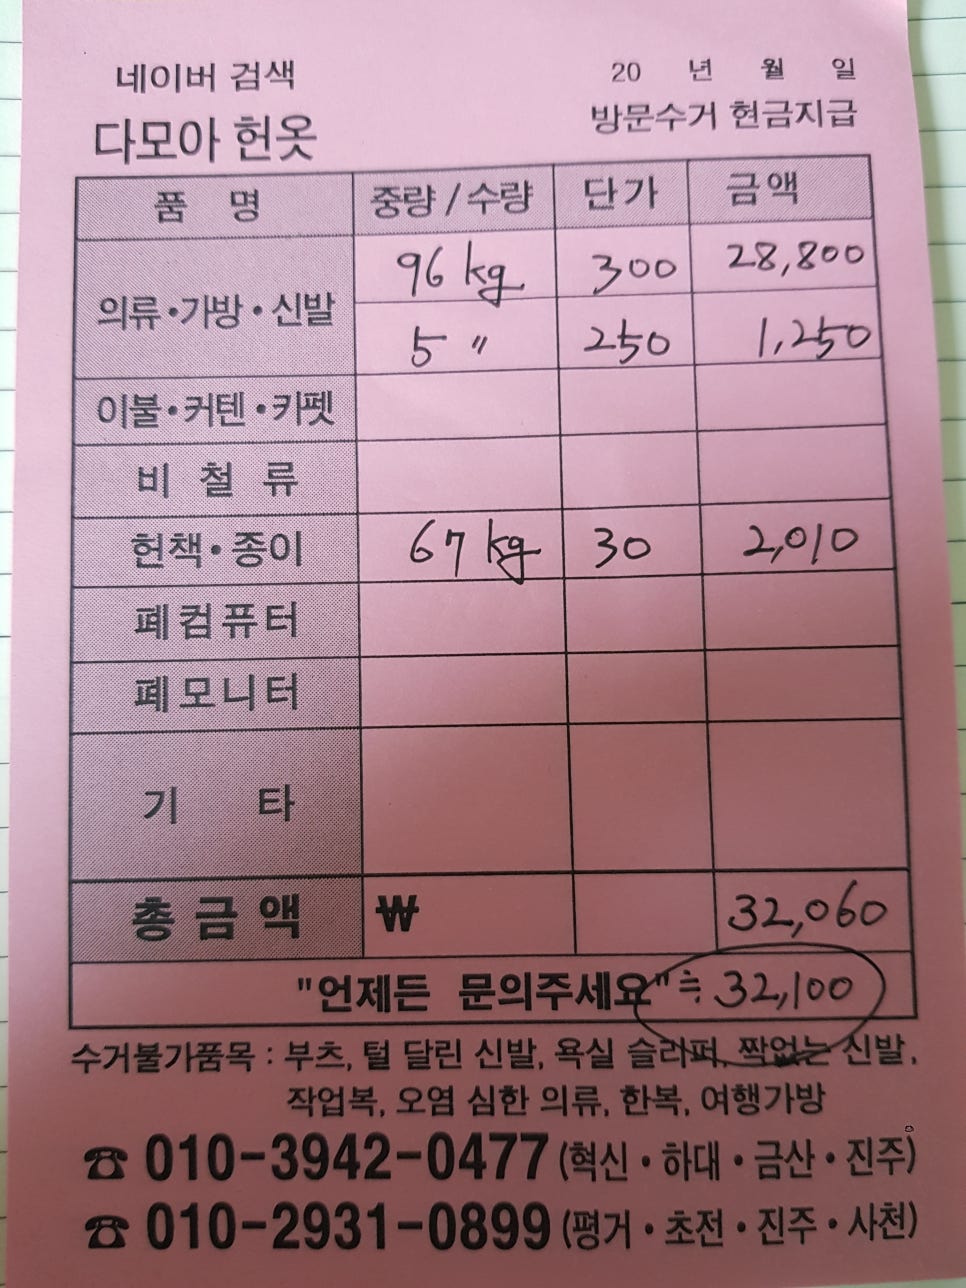 네이버 검색
20 년 월 일
다모아 헌옷
방문수거 현금지급
품 명 중량 / 수량 단가 금액
의류·가방·신발 96 kg 300 28,800
5 〃 250 1,250
이불·커텐·카펫
비 철 류
헌책·종이 67 kg 30 2,010
폐컴퓨터
폐모니터
기 타
총 금 액 ₩ 32,060
"언제든 문의주세요" ≒ 32,100
수거불가품목 : 부츠, 털 달린 신발, 욕실 슬리퍼, 짝없는 신발,
작업복, 오염 심한 의류, 한복, 여행가방
☎ 010-3942-0477 (혁신·하대·금산·진주)
☎ 010-2931-0899 (평거·초전·진주·사천)